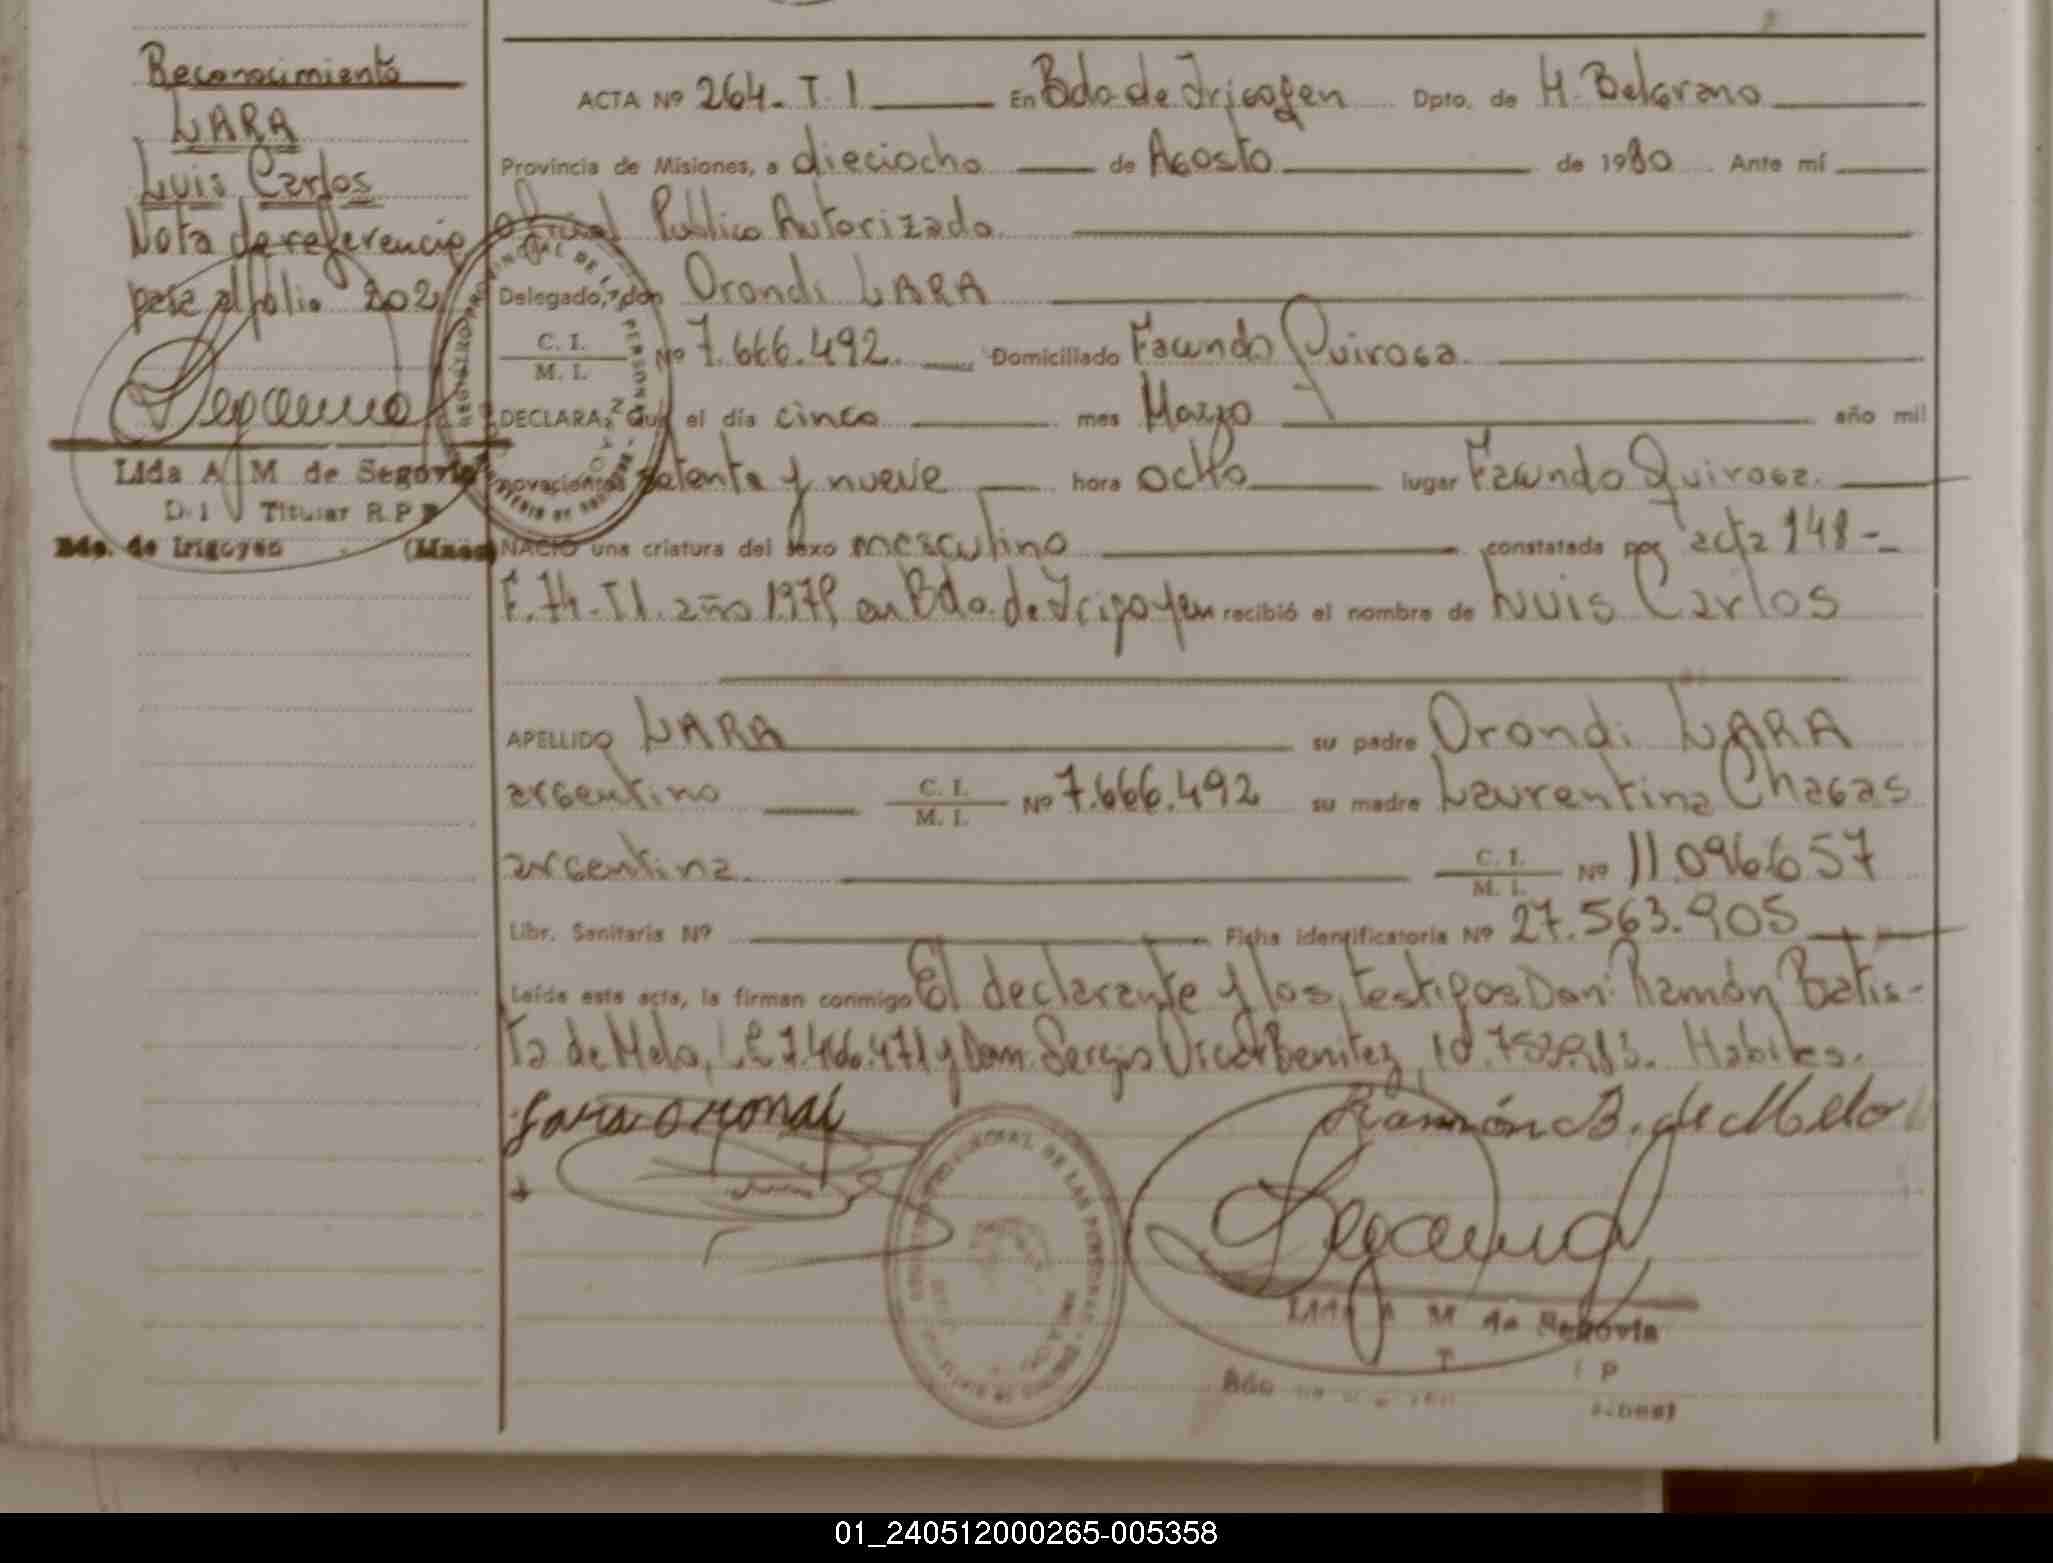 Reconocimiento
LARA
Luis Carlos
Nota de referencia
pasa al folio 202
Lida A M de Segovia
D. I Titular R.P
Bdo. de Irigoyen (Mnes)
ACTA Nº 264 - T. I En Bdo de Irigoyen Dpto. de M. Belgrano
Provincia de Misiones, a dieciocho de Agosto de 1980 Ante mí
oficial Publico Autorizado
Delegado, don Orondi LARA
C. I.
M. I. Nº 7.666.492 Domiciliado Facundo Quiroga
DECLARA: Que el día cinco mes Marzo año mil
novecientos setenta y nueve hora ocho lugar Facundo Quiroga
NACIÓ una criatura del sexo masculino constatada por acta 148 -
F. 74 - T I. año 1979 en Bdo. de Irigoyen recibió el nombre de Luis Carlos
APELLIDO LARA su padre Orondi LARA
argentino C. I. M. I. Nº 7.666.492 su madre Laurentina Chagas
argentina C. I. M. I. Nº 11.096.657
Libr. Sanitaria Nº Ficha identificatoria Nº 27.563.905
Leída esta acta, la firman conmigo El declarante y los testigos Don: Ramón Batis-
ta de Melo, LE 7.466.471 y Don Sergio Benitez, Habiles.
Ramón B. de Mello
Lida A M de Segovia
01_240512000265-005358